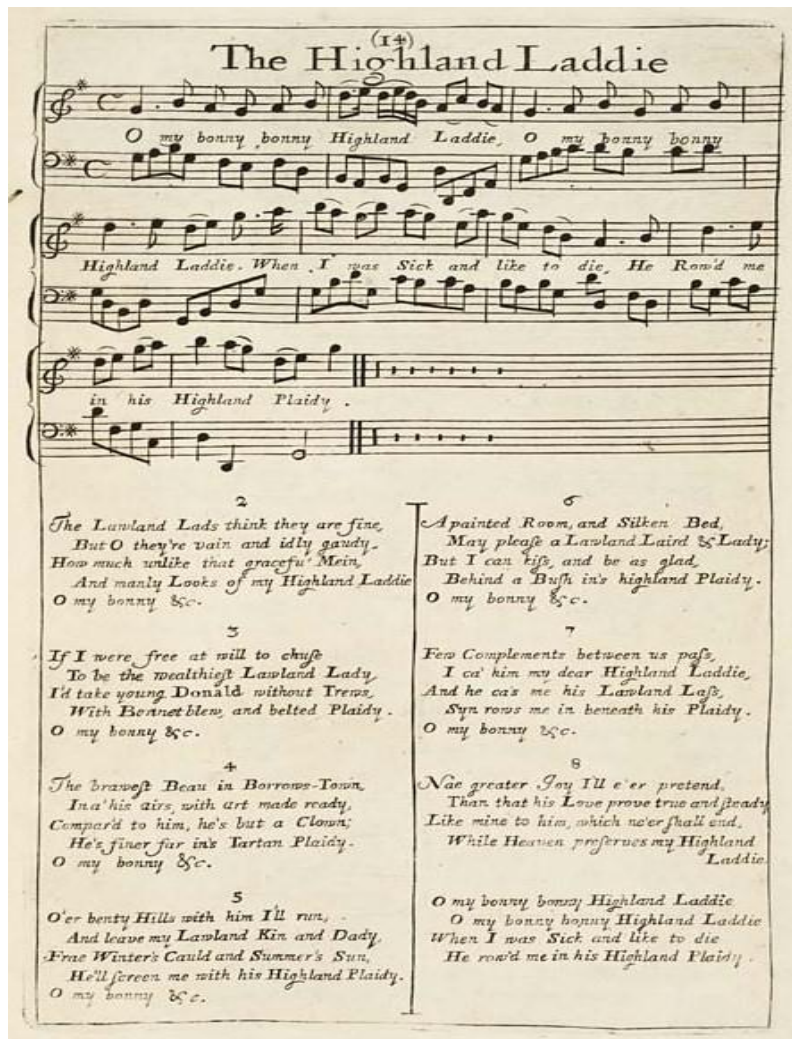 (14)
The Highland Laddie
O my bonny bonny Highland Laddie, O my bonny bonny
Highland Laddie. When I was Sick and like to die, He Row'd me
in his Highland Plaidy.
2
The Lawland Lads think they are fine,
But O they're vain and idly gaudy.
How much unlike that gracefu' Mein,
And manly Looks of my Highland Laddie
O my bonny &c.
3
If I were free at will to chuse
To be the wealthiest Lawland Lady,
I'd take young Donald without Trews,
With Bonnet blew, and belted Plaidy.
O my bonny &c.
4
The brawest Beau in Borrows-Town,
In a' his airs, with art made ready,
Compar'd to him, he's but a Clown;
He's finer far in's Tartan Plaidy.
O my bonny &c.
5
O'er benty Hills with him I'll run,
And leave my Lawland Kin and Dady,
Frae Winter's Cauld and Summer's Sun,
He'll screen me with his Highland Plaidy.
O my bonny &c.
6
A painted Room, and Silken Bed,
May please a Lawland Laird & Lady;
But I can kiss, and be as glad,
Behind a Bush in's highland Plaidy.
O my bonny &c.
7
Few Complements between us pass,
I ca' him my dear Highland Laddie,
And he ca's me his Lawland Lass,
Syn rows me in beneath his Plaidy.
O my bonny &c.
8
Nae greater Joy I'll e'er pretend,
Than that his Love prove true and steady
Like mine to him, which ne'er shall end,
While Heaven preserves my Highland
Laddie.
O my bonny bonny Highland Laddie
O my bonny bonny Highland Laddie
When I was Sick and like to die
He row'd me in his Highland Plaidy.